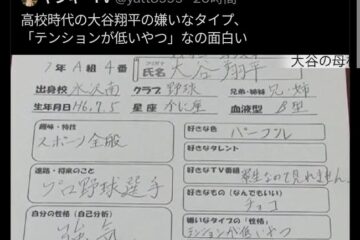 高校時代の大谷翔平の嫌いなタイプ、
「テンションが低いやつ」なの面白い
大谷の母校
1年A組4番
フリガナ
氏名 大谷翔平
出身校 水沢南 クラブ 野球 兄弟・姉妹 兄・姉
生年月日 H6.7.5 星座 かに座 血液型 B型
趣味・特技
スポーツ全般
好きな色 パープル
好きなタレント
進路・将来のこと
プロ野球選手
好きなTV番組 寮生なので見れません
好きなもの(なんでもいい)
チョコ
自分の性格(自己分析)
嫌いなタイプの「性格」
テンションが低いやつ